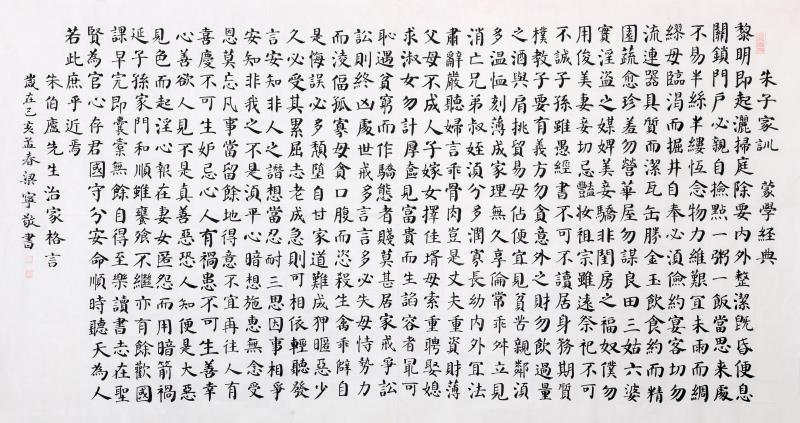 朱子家訓 蒙學經典
黎明即起灑掃庭除要內外整潔既昏便息
關鎖門戶必親自撿點一粥一飯當思來處
不易半絲半縷恆念物力維艱宜未雨而綢
繆毋臨渴而掘井自奉必須儉約宴客切勿
流連器具質而潔瓦缶勝金玉飲食約而精
園蔬愈珍羞勿營華屋勿謀良田三姑六婆
實淫盜之媒婢美妾驕非閨房之福奴僕勿
用俊美妻妾切忌豔妝祖宗雖遠祭祀不可
不誠子孫雖愚經書不可不讀居身務期質
樸教子要有義方勿貪意外之財勿飲過量
之酒與肩挑貿易毋佔便宜見貧苦親鄰須
多溫恤刻薄成家理無久享倫常乖舛立見
消亡兄弟叔姪須分多潤寡長幼內外宜法
肅辭嚴聽婦言乖骨肉豈是丈夫重資財薄
父母不成人子嫁女擇佳壻毋索重聘娶媳
求淑女勿計厚奩見富貴而生諂容者最可
恥遇貧窮而作驕態者賤莫甚居家戒爭訟
訟則終凶處世戒多言言多必失毋恃勢力
而淩偪孤寡毋貪口腹而恣殺生禽乖僻自
是悔誤必多頹墮自甘家道難成狎暱惡少
久必受其累屈志老成急則可相依輕聽發
言安知非人之譖愬當忍耐三思因事相爭
安知非我之不是須平心暗想施惠無念受
恩莫忘凡事當留餘地得意不宜再往人有
喜慶不可生妒忌心人有禍患不可生喜幸
心善欲人見不是真善惡恐人知便是大惡
見色而起淫心報在妻女匿怨而用暗箭禍
延子孫家門和順雖饔飧不繼亦有餘歡國
課早完即囊橐無餘自得至樂讀書志在聖
賢為官心存君國守分安命順時聽天為人
若此庶乎近焉
朱伯廬先生治家格言
歲在己亥孟春梁寧敬書